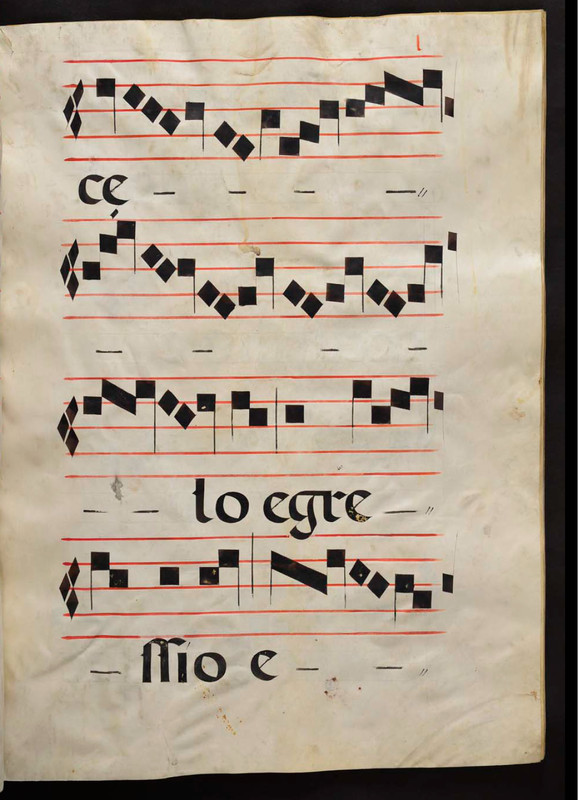 cę
lo egre
ssio e